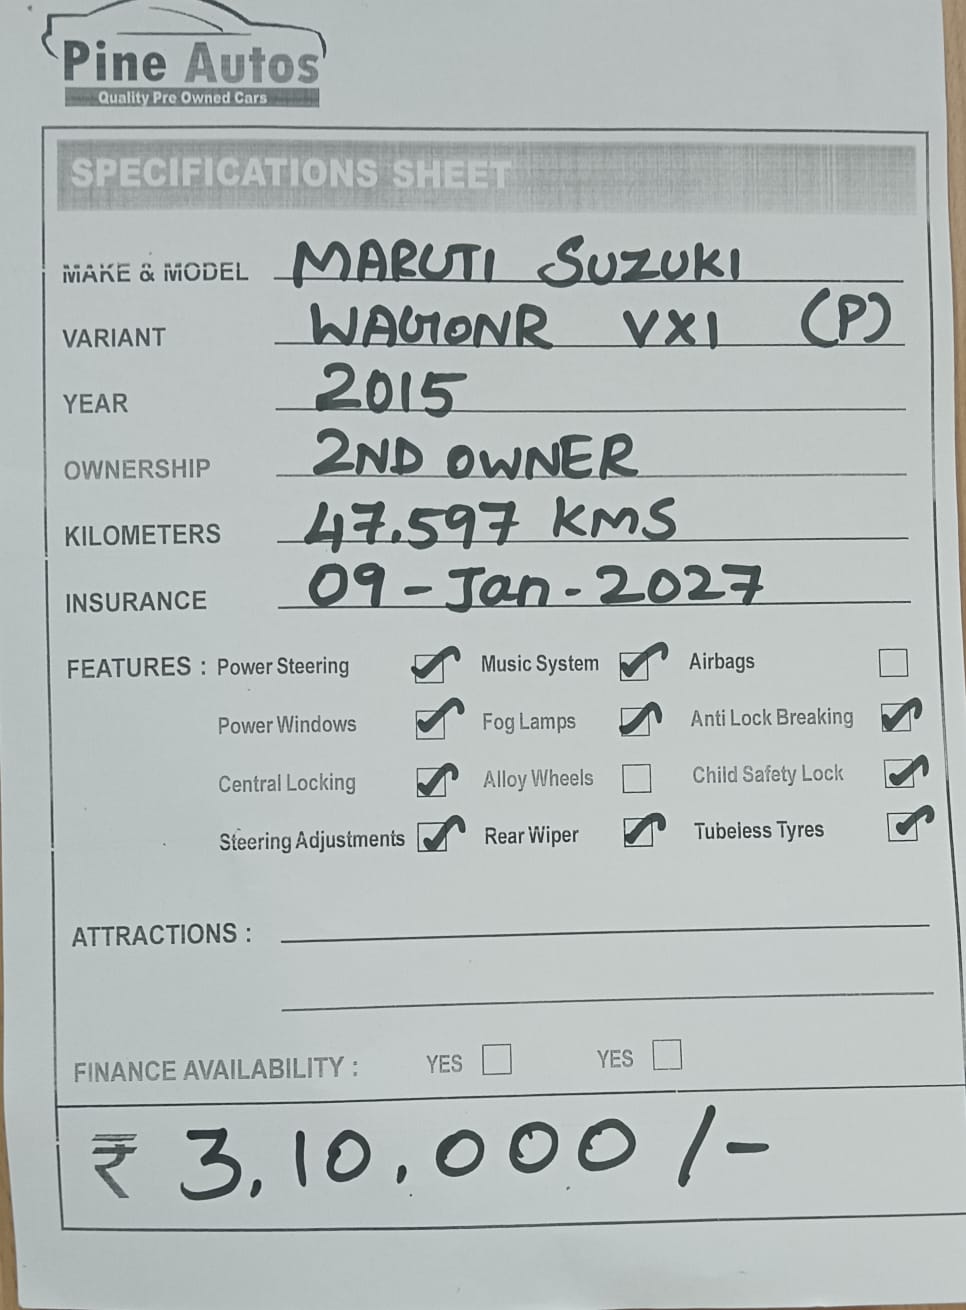 Pine Autos
Quality Pre Owned Cars
SPECIFICATIONS SHEET
MAKE & MODEL MARUTI SUZUKI
VARIANT WAGONR VXI (P)
YEAR 2015
OWNERSHIP 2ND OWNER
KILOMETERS 47.597 KMS
INSURANCE 09-Jan-2027
FEATURES : Power Steering Music System Airbags
Power Windows Fog Lamps Anti Lock Breaking
Central Locking Alloy Wheels Child Safety Lock
Steering Adjustments Rear Wiper Tubeless Tyres
ATTRACTIONS :
FINANCE AVAILABILITY : YES YES
₹ 3,10,000/-